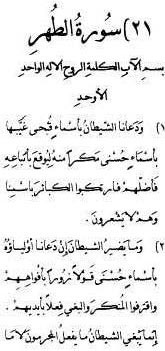 (٢١) سورة الطهر
بسم الآب الكلمة الروح الإله الواحد
الأوحد
(١) ودعانا الشيطان بأسماء قبحى غيبها
بأسماء حسنى مكرا منه ليوقع بأتباعه
فأضلهم فارتكبوا الكبائر باسمنا
وهم لا يشعرون.
(٢) وما يضير الشيطان إن دعانا أولياؤه
بأسماء حسنى قولا زورا بأفواههم
واقترفوا المنكر والبغي فعلا بأيديهم.
إنما يبغي الشيطان ما يفعل المجرمون لا ما